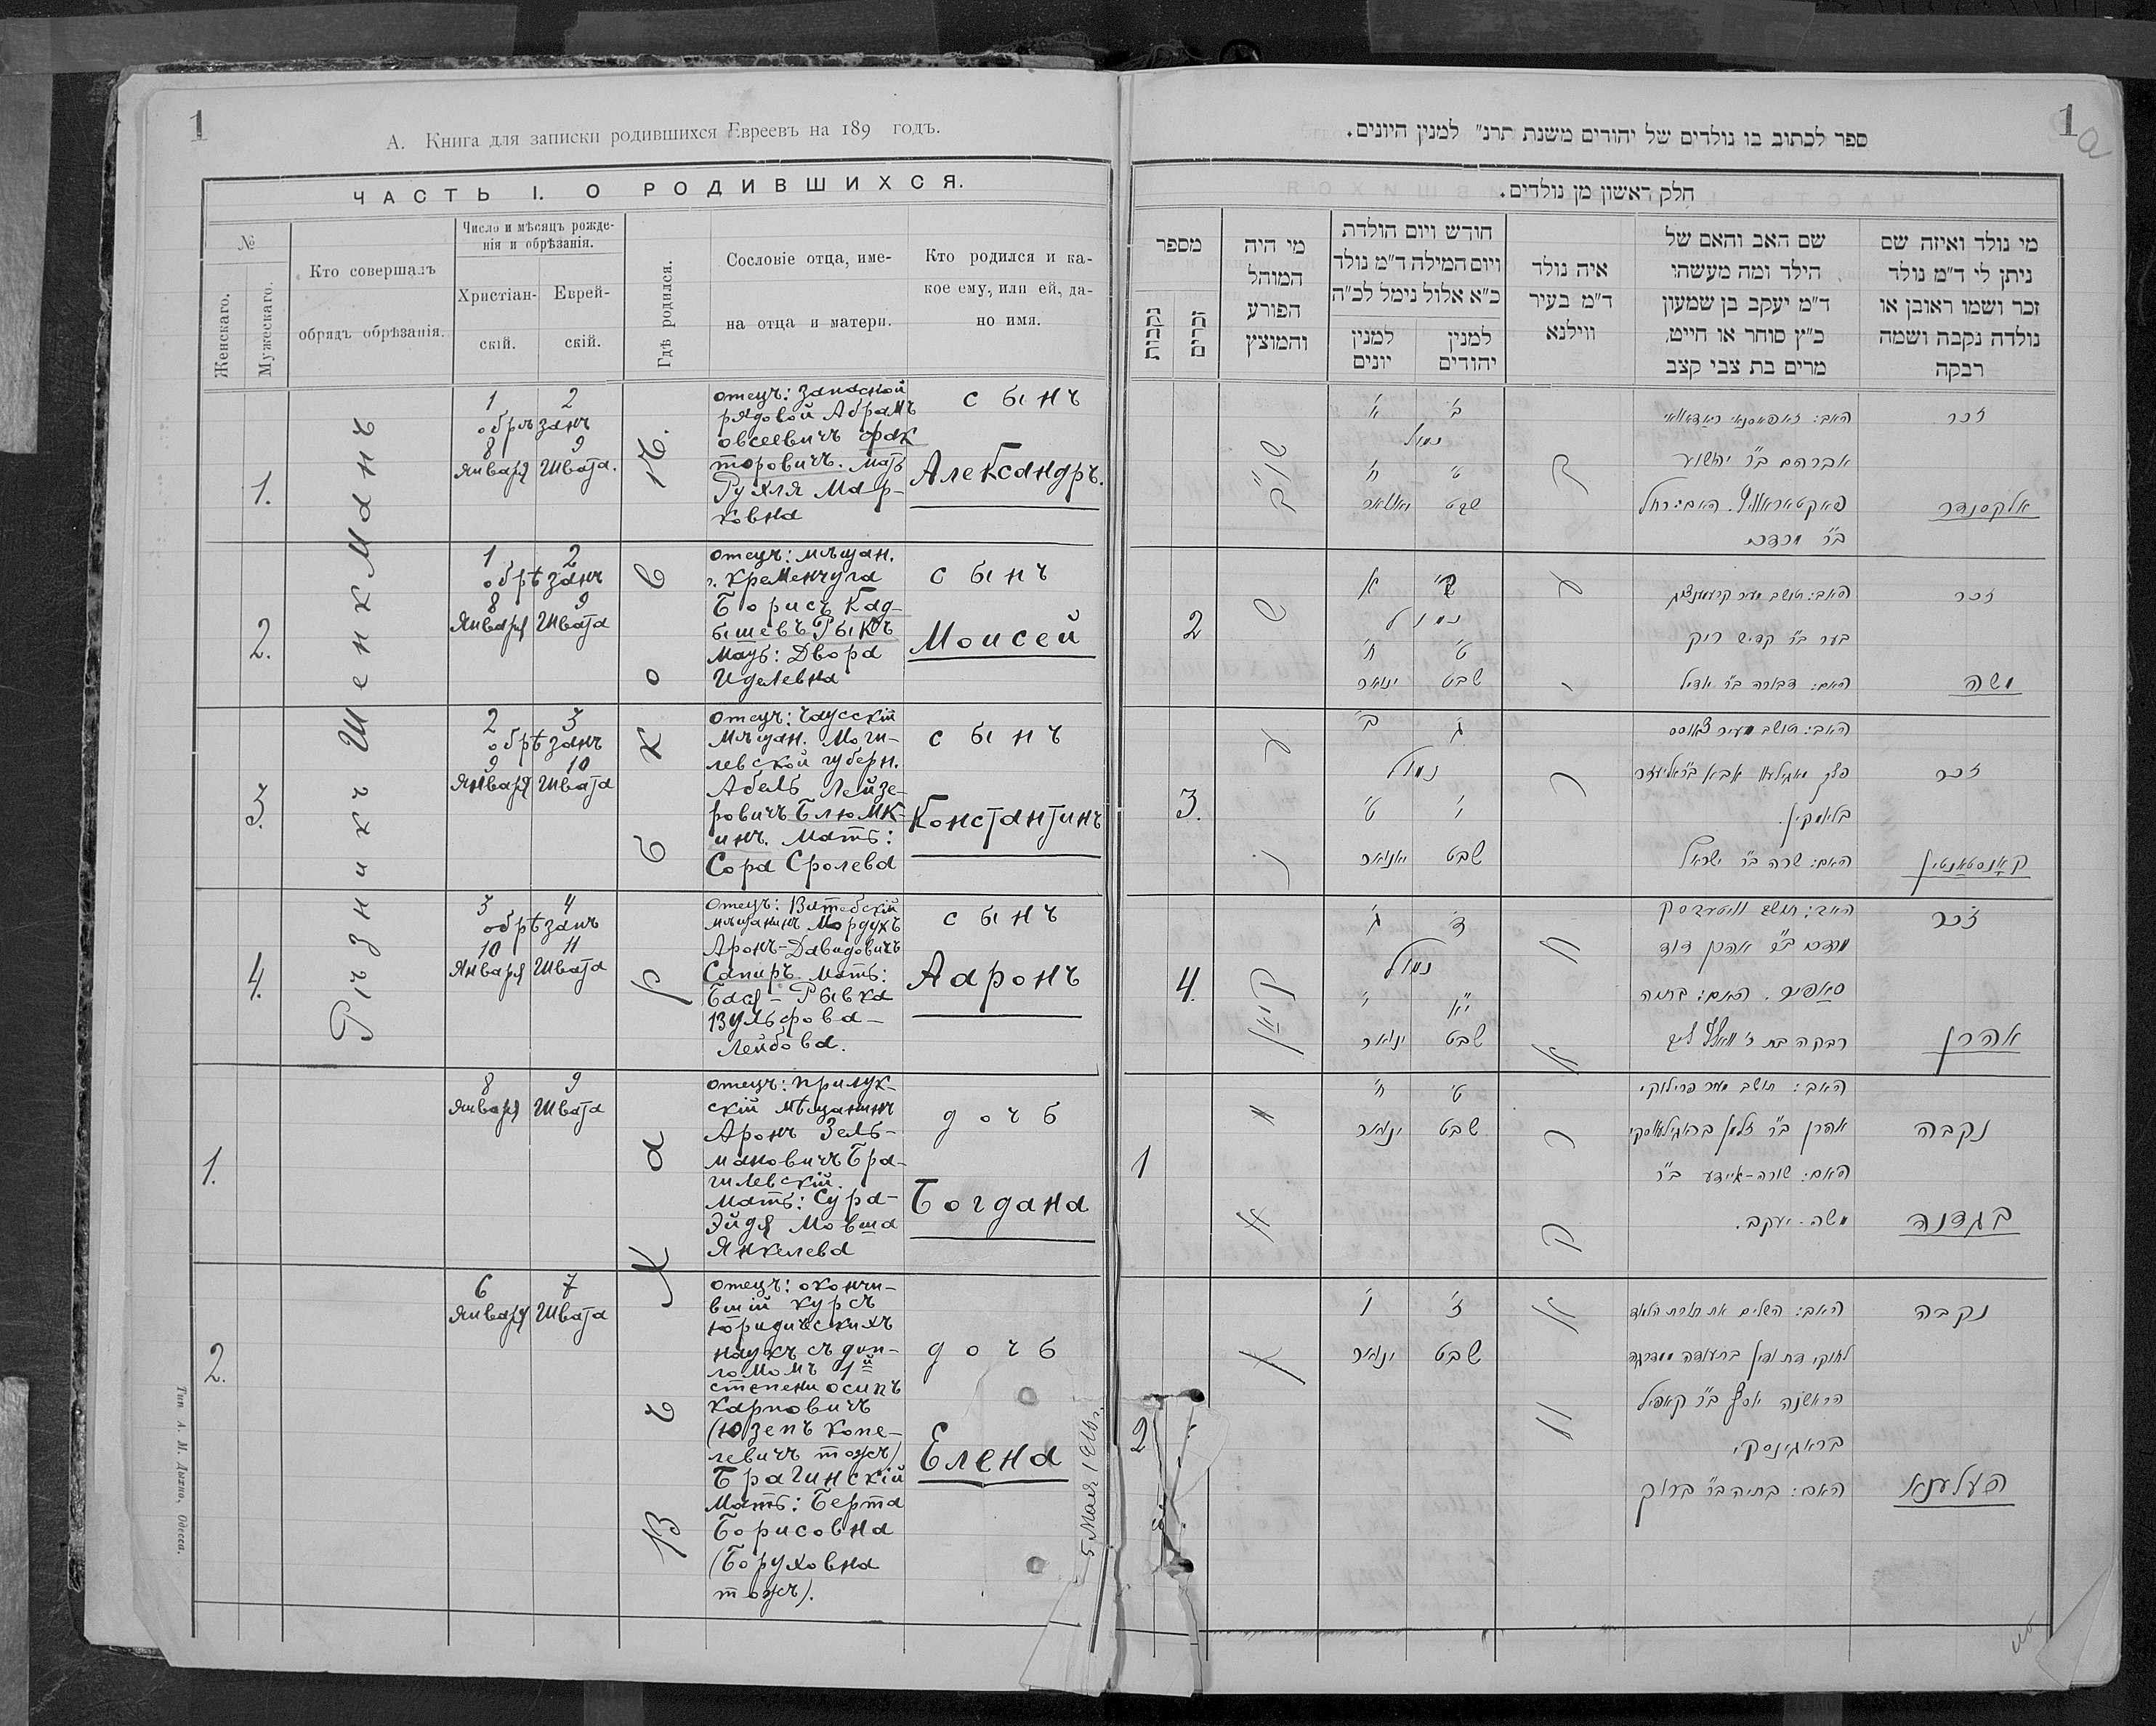 1
А. Книга для записки родившихся Евреевъ на 189 годъ.
ЧАСТЬ I. О РОДИВШИХСЯ.
№
Женскаго.
Мужескаго.
Кто совершалъ
обрядъ обрѣзанія.
Число и мѣсяцъ рожде-
нія и обрѣзанія.
Христіан-
скій.
Еврей-
скій.
Гдѣ родился.
Сословіе отца, име-
на отца и матери.
Кто родился и ка-
кое ему, или ей, да-
но имя.
Рѣзникъ Шенкманъ
1.
1 2
обрѣзанъ
8 9
Января Швата.
отецъ: запасной
рядовой Абрамъ
Овсеевичъ Фак
торовичъ. Мать
Рухля Мар-
ковна
сынъ
Александръ.
2.
1 2
обрѣзанъ
8 9
Января Швата
отецъ: мѣщан.
г. Кременчуга
Борисъ Кад-
ышевъ Рыкъ
Мать: Двора
Иделевна
сынъ
Моисей
3.
2 3
обрѣзанъ
9 10
Января Швата
отецъ: Чаусскій
мѣщан. Моги-
левской губерн.
Абель Лейзе-
ровичъ Блюмк-
инъ. Мать:
Сора Сролева
сынъ
Константинъ
4.
3 4
обрѣзанъ
10 11
Января Швата
отецъ: Витебскій
мѣщанинъ Мордухъ
Аронъ-Давидовичъ
Сапиръ Мать:
Бася-Рывка
Вульфова-
Лейбова.
сынъ
Ааронъ
1.
8 9
Января Швата
отецъ: прилук-
скій мѣщанинъ
Аронъ Зель-
мановичъ Бра-
гилевскій.
Мать: Сура-
Эйдя Мовша
Янкелева
дочь
Богдана
2.
6 7
Января Швата
отецъ: окончи-
вшій курсъ
юридическихъ
наукъ съ дип-
ломомъ 1й
степени Осипъ
Карповичъ
(Юзепъ Копе-
левичъ тожъ)
Брагинскій
Мать: Берта
Борисовна
(Боруховна
тожъ).
дочь
Елена
Тип. А. М. Дыхно, Одесса.
1
ספר לכתוב בו נולדים של יהודים משנת תרנ״ למנין היונים.
חלק ראשון מן נולדים.
מספר
נקבות
זכרים
מי היה
המוהל
הפורע
והמוצץ
חודש ויום הולדת
ויום המילה ד״מ נולד
כ״א אלול נימל לכ״ה
למנין
יונים
למנין
יהודים
איה נולד
ד״מ בעיר
ווילנא
שם האב והאם של
הילד ומה מעשהו
ד״מ יעקב בן שמעון
כ״ץ סוחר או חייט,
מרים בת צבי קצב
מי נולד ואיזה שם
ניתן לו ד״מ נולד
זכר ושמו ראובן או
נולדה נקבה ושמה
רבקה
ב׳ א׳
נמול
ט׳ ח׳
שבט יאנואר
אברהם ב״ר יהושע
האם: רחל
ב״ר מרדכי
זכר
אלקסנדר
2
ב׳ א׳
נמול
ט׳ ח׳
שבט ינואר
בער ב״ר קדיש ריק
האם: דבורה ב״ר אידיל
זכר
משה
3.
ג ב׳
נמול
י׳ ט׳
שבט יאנואר
בלומקין.
האם: שרה ב״ר ישראל
זכר
קאנסטאנטין
4.
ד׳ ג׳
נמול
י״א י׳
שבט ינואר
מרדכי ב״ר אהרן דוד
סאפיר. האם: בתיה
זכר
אהרן
1
ט׳ ח׳
שבט ינואר
האב: תושב מעיר פרילוקי
אהרן ב״ר זלמן בראגילאווסקי
האם: שורה-איידע ב״ר
משה-יעקב.
נקבה
בגדנה
2
ז׳ ו׳
שבט ינואר
הראשנה יוסף ב״ר קאפיל
בראגינסקי
האם: בתיה ב״ר ברוך
נקבה
העלענא